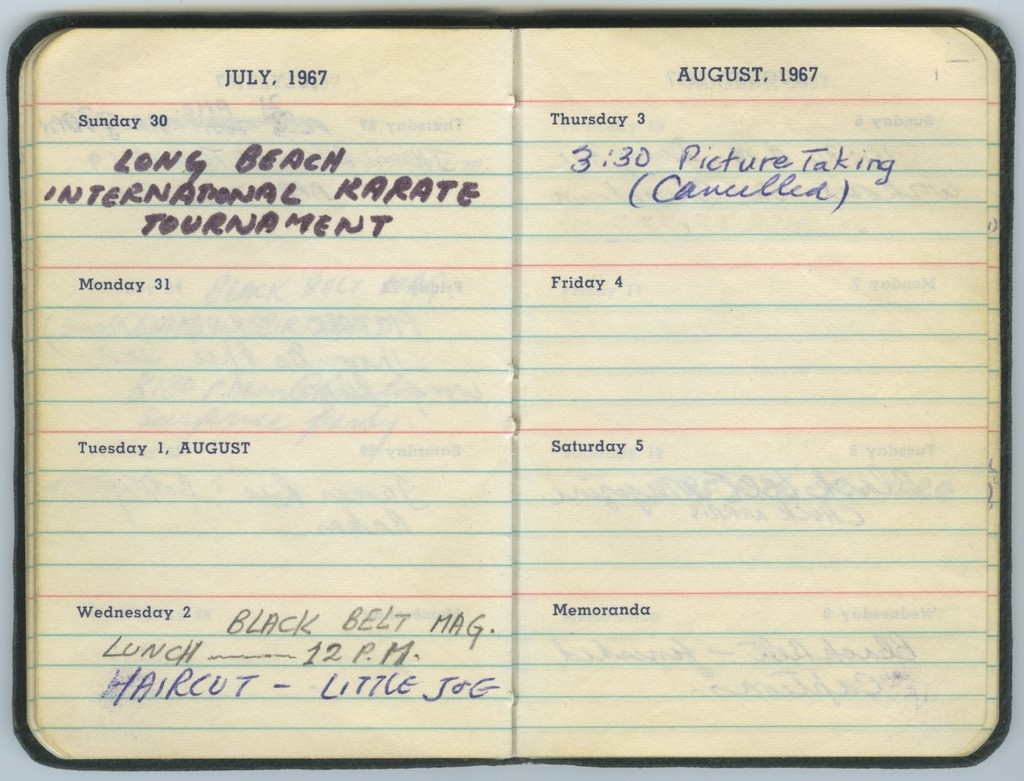 JULY, 1967
Sunday 30
LONG BEACH
INTERNATIONAL KARATE
TOURNAMENT
Monday 31
Tuesday 1, AUGUST
Wednesday 2
BLACK BELT MAG.
LUNCH —— 12 P.M.
HAIRCUT – LITTLE JOE
AUGUST, 1967
Thursday 3
3:30 Picture Taking
(Cancelled)
Friday 4
Saturday 5
Memoranda